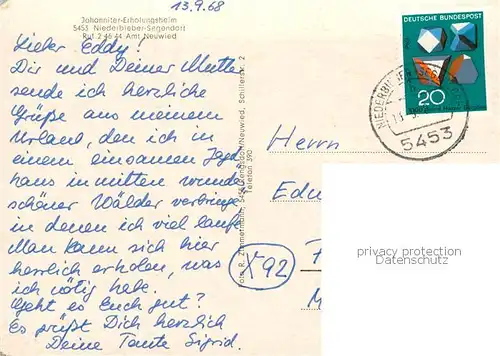 13.9.68
Johanniter-Erholungsheim
5453 Niederbieber-Segendorf
Ruf 2 46 44 Amt Neuwied
Lieber Eddy!
Dir und Deiner Mutter
sende ich herzliche
Grüße aus meinem
Urlaub, den ich in
einem einsamen Jagd
haus inmitten wunder
schöner Wälder verbringe
in denen ich viel laufe.
Man kann sich hier
herrlich erholen, was
ich nötig habe.
Geht es Euch gut?
Es grüßt Dich herzlich
Deine Tante Sigrid.
Foto R. Zimmermann, 5451 Neuwied, Schillerstr. 2
Telefon 390
DEUTSCHE BUNDESPOST
20
NIEDERBIEBER-SEGENDORF
5453
Herrn
Edu
592
privacy protection
Datenschutz